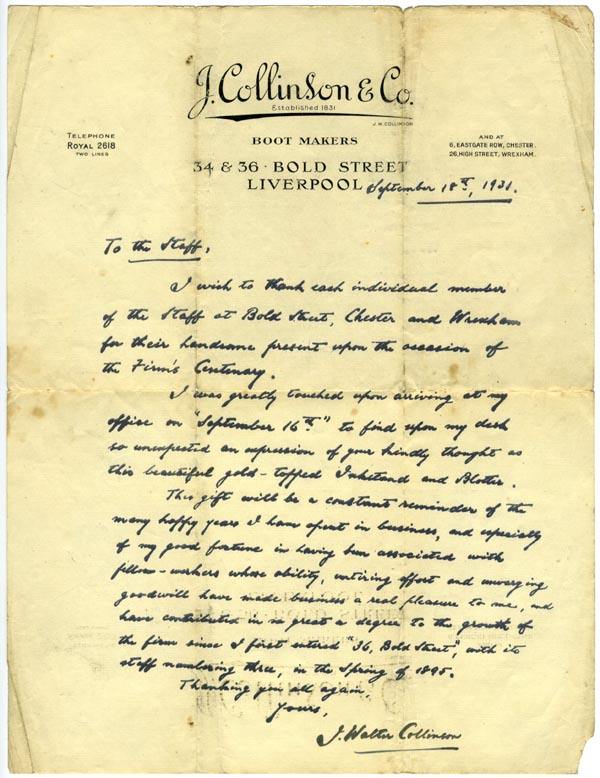 J. Collinson & Co.
Established 1831
J. W. COLLINSON
TELEPHONE
ROYAL 2618
TWO LINES
BOOT MAKERS
AND AT
6, EASTGATE ROW, CHESTER.
26, HIGH STREET, WREXHAM.
34 & 36 · BOLD STREET
LIVERPOOL
September 18th, 1931.
To the Staff,
I wish to thank each individual member
of the Staff at Bold Street, Chester and Wrexham
for their handsome present upon the occasion of
the Firm's Centenary.
I was greatly touched upon arriving at my
office on "September 16th" to find upon my desk
so unexpected an expression of your kindly thought as
this beautiful gold-topped Inkstand and Blotter.
This gift will be a constant reminder of the
many happy years I have spent in business, and especially
of my good fortune in having been associated with
fellow-workers whose ability, untiring effort and unverging
goodwill have made business a real pleasure to me, and
have contributed in so great a degree to the growth of
the firm since I first entered "36, Bold Street", with its
staff numbering three, in the Spring of 1895.
Thanking you all again,
Yours,
J. Walter Collinson